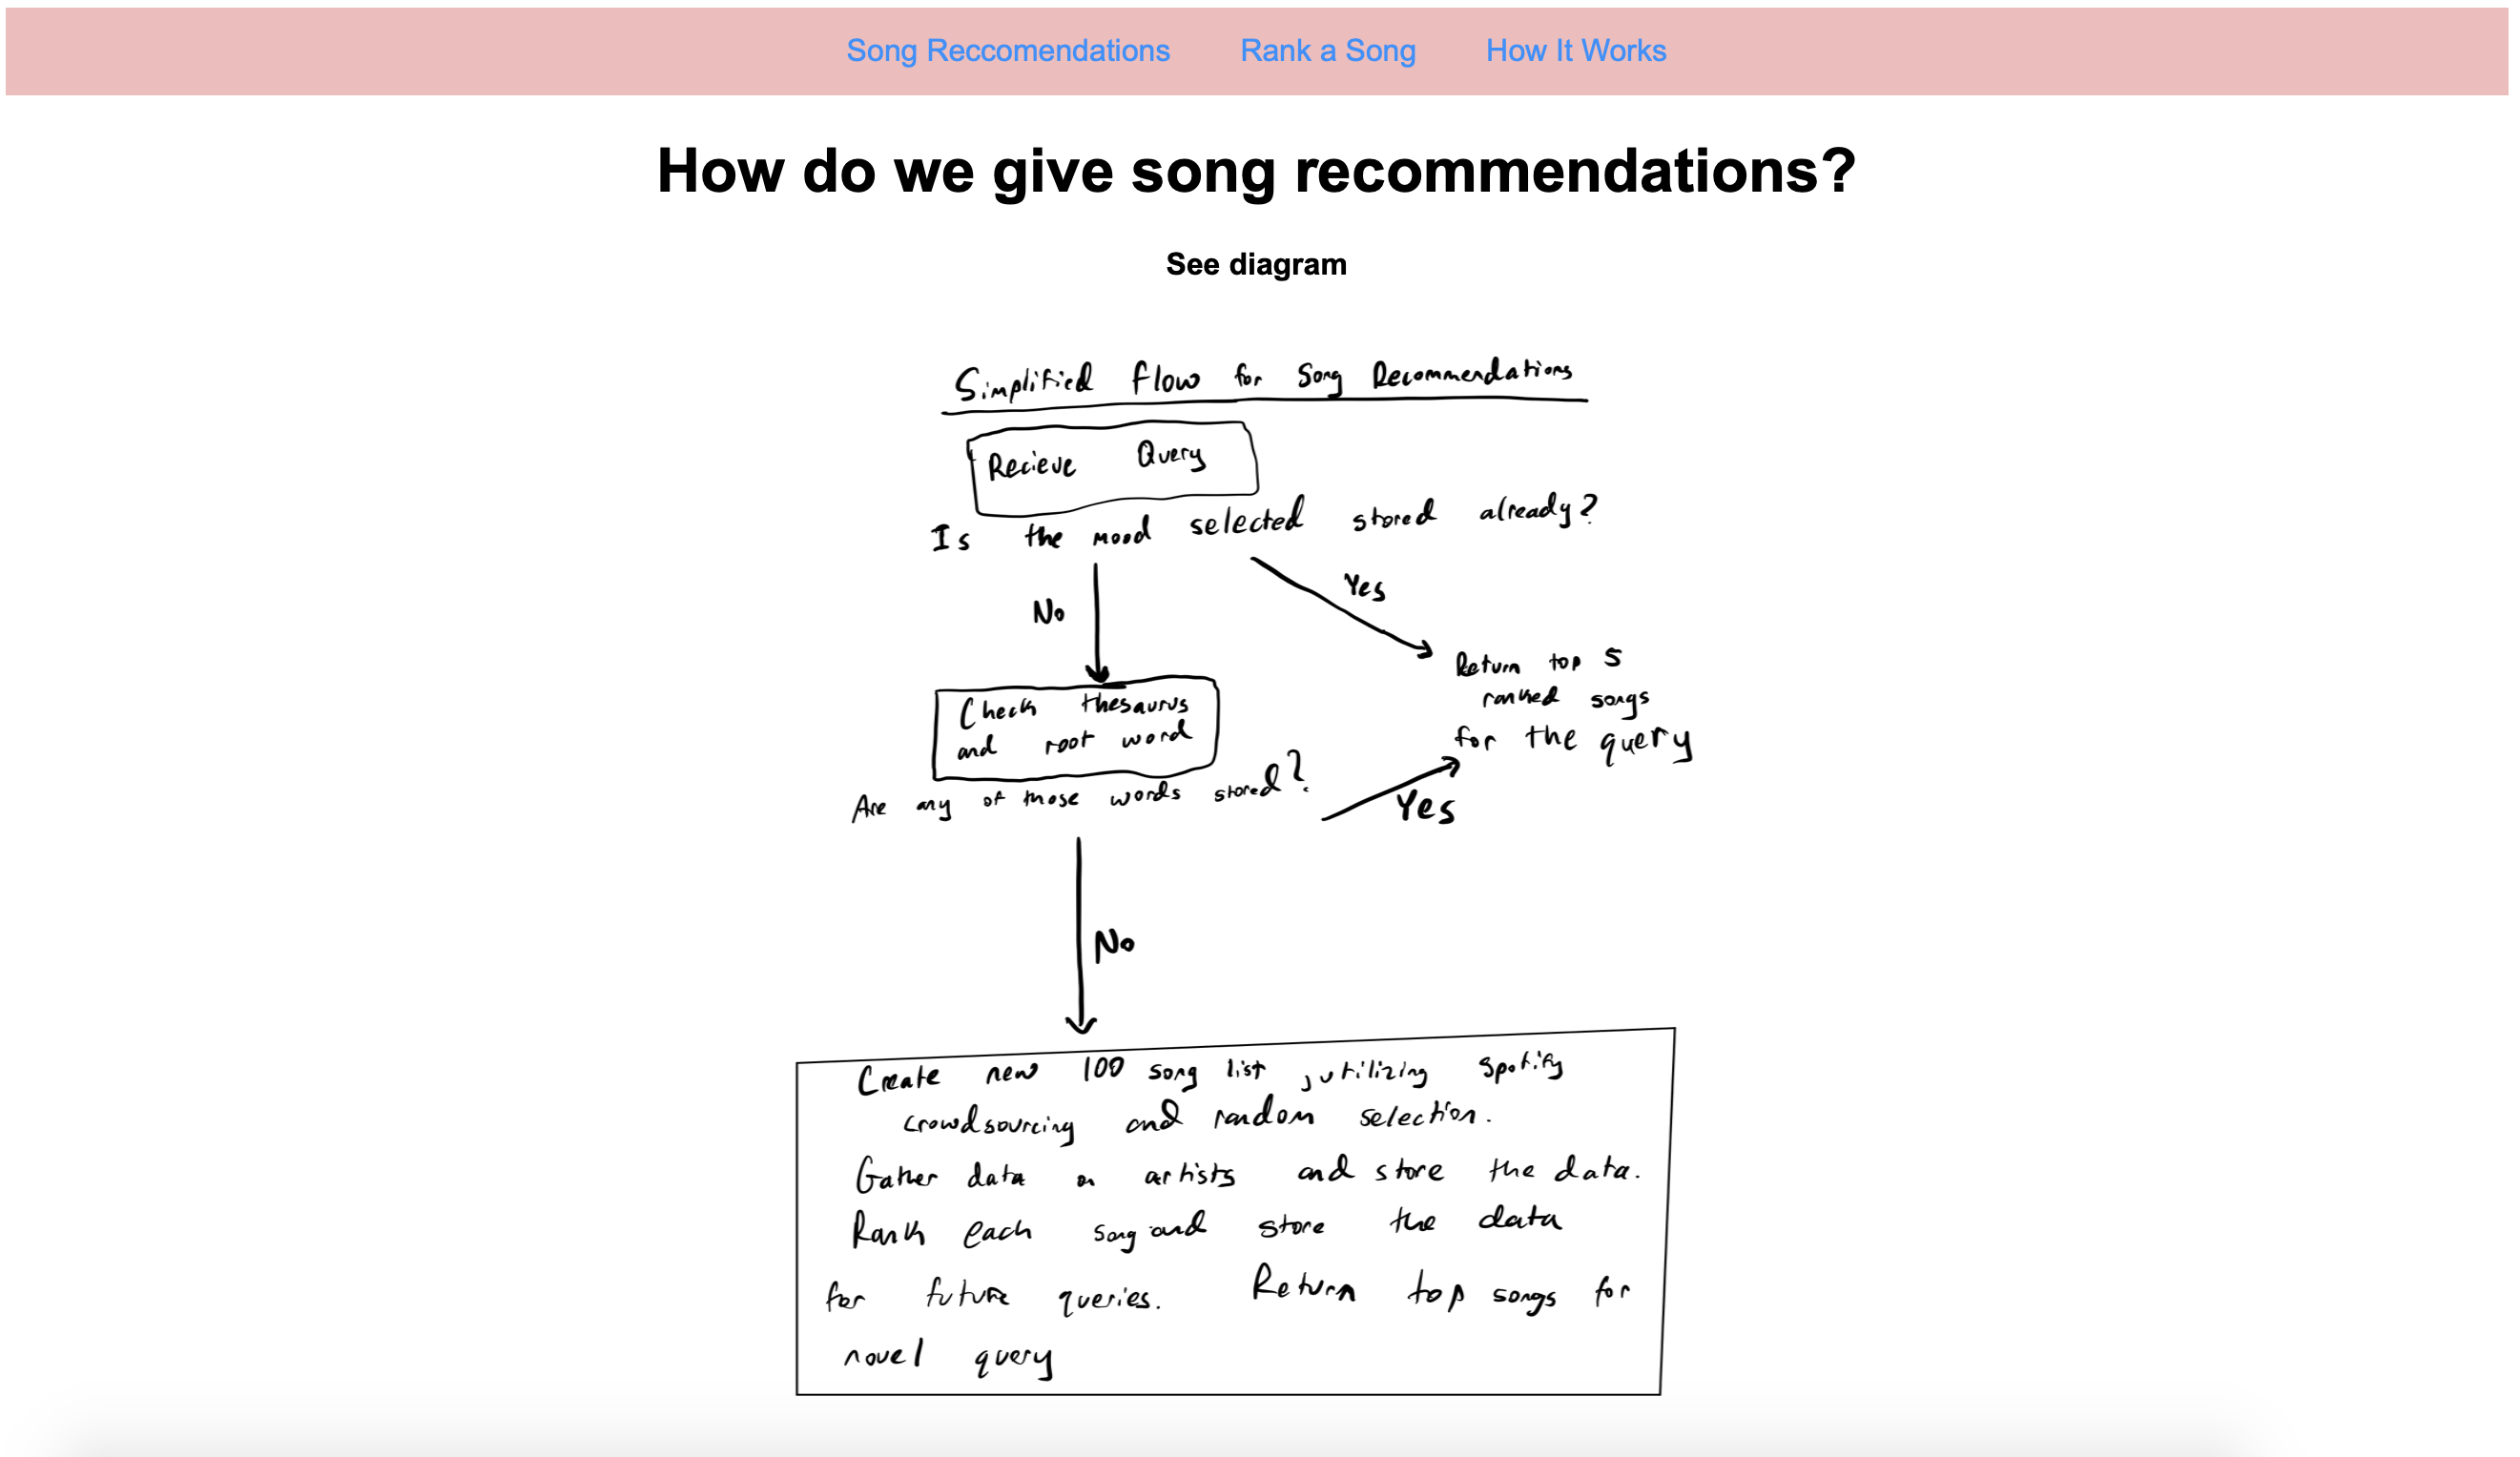 Song Reccomendations Rank a Song How It Works
How do we give song recommendations?
See diagram
Simplified flow for Song Recommendations
Recieve Query
Is the mood selected stored already?
No
Yes
Return top 5
ranked songs
for the query
Check thesaurus
and root word
Are any of those words stored?
Yes
No
Create new 100 song list, utilizing Spotify
crowdsourcing and random selection.
Gather data on artists and store the data.
Rank each song and store the data
for future queries. Return top songs for
novel query